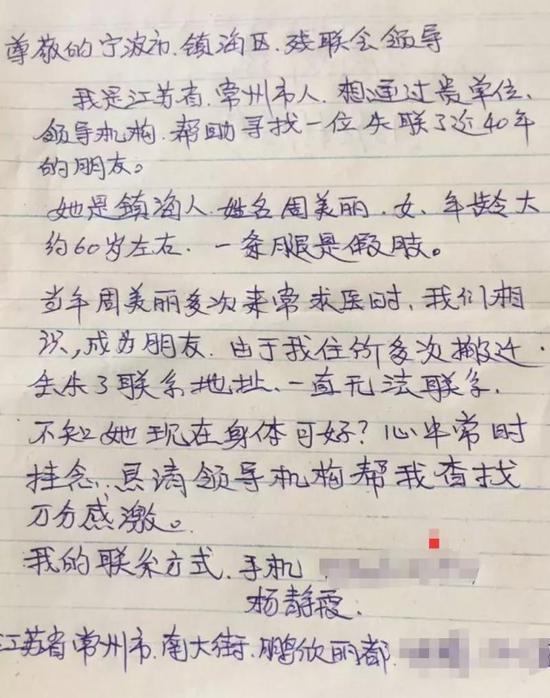 尊敬的宁波市.镇海区.残联会领导
我是江苏省.常州市人.想通过贵单位.
领导机构.帮助寻找一位失联了近40年
的朋友。
她是镇海人.姓名周美丽.女.年龄大
约60岁左右.一条腿是假肢。
当年周美丽多次来常求医时,我们相
识,成为朋友.由于我住所多次搬迁
丢失了联系地址.一直无法联系.
不知她现在身体可好?心中常时
挂念.恳请领导机构帮我查找
万分感激。
我的联系方式.手机
杨静霞.
江苏省常州市.南大街.鹏欣丽都.